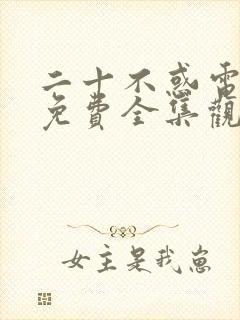 二十不惑電
免費全集觀
女主是我崽